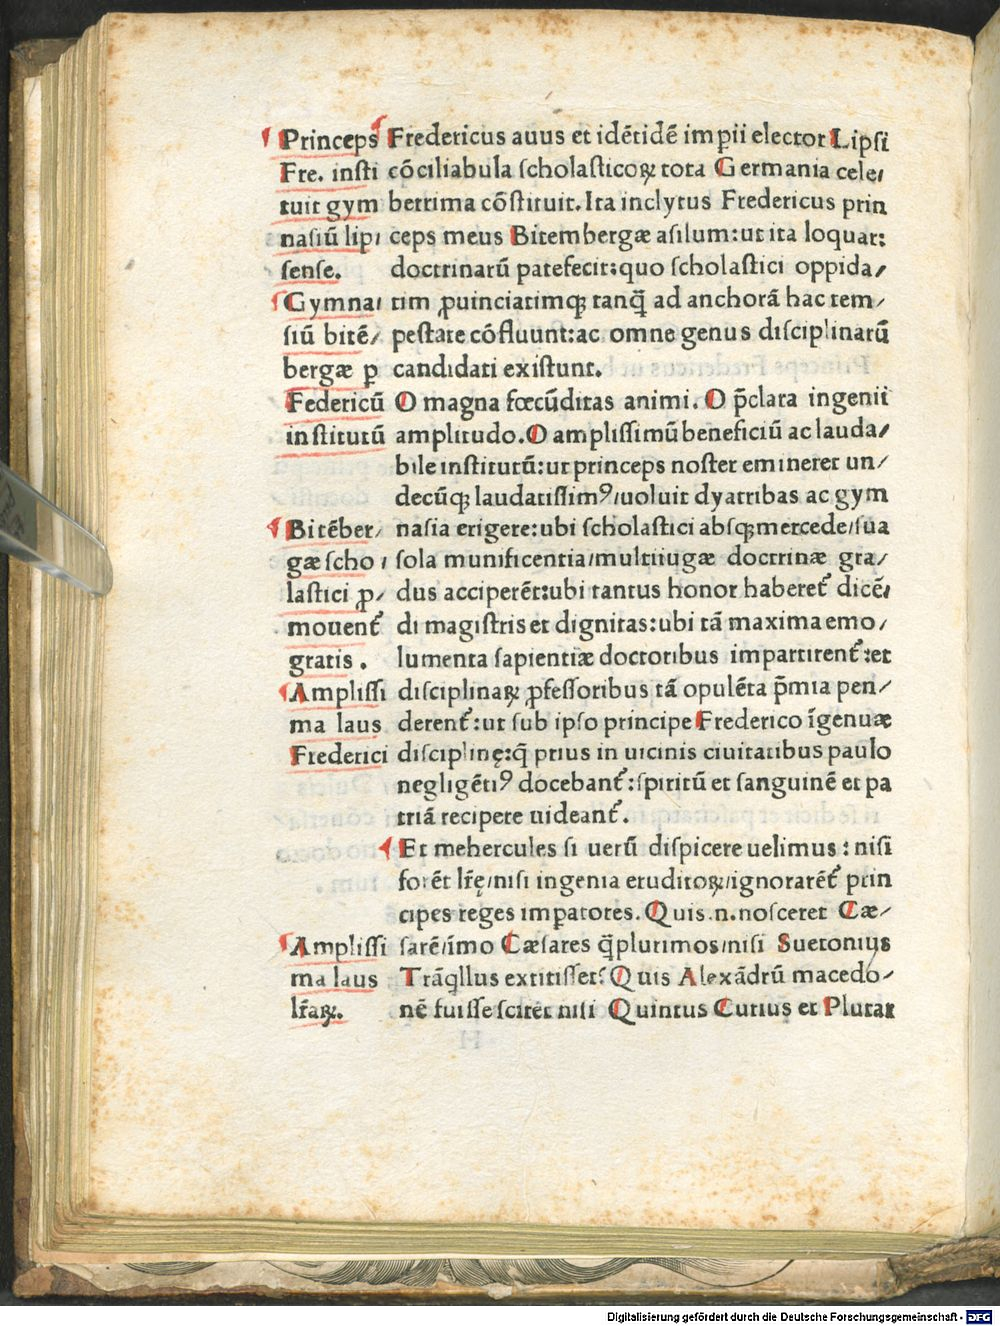 Princeps
Fre. insti
tuit gym
nasiū lip⸗
sense.
Gymna⸗
siū bitē⸗
bergæ ꝑ
Federicū
institutū
Bitēber⸗
gæ scho⸗
lastici ꝓ⸗
mouentᷣ
gratis.
Amplissi
ma laus
Frederici
Amplissi
ma laus
lr̄aꝝ.
Fredericus auus et idētidē imꝑii elector Lipsi
cōciliabula scholasticoꝝ tota Germania cele⸗
berrima cōstituit. Ita inclytus Fredericus prin
ceps meus Bitembergæ asilum: ut ita loquar:
doctrinarū patefecit: quo scholastici oppida⸗
tim ꝓuinciatimqꝫ tanq̄ ad anchorā hac tem⸗
pestate cōfluunt: ac omne genus disciplinarū
candidati existunt.
O magna fœcūditas animi. O p̄clara ingenii
amplitudo. O amplissimū beneficiū ac lauda⸗
bile institutū: ut princeps noster emineret un⸗
decūqꝫ laudatissimꝰ/uoluit dyatribas ac gym
nasia erigere: ubi scholastici absqꝫ mercede/sua
sola munificentia/multiiugæ doctrinæ gra⸗
dus acciperēt: ubi tantus honor haberetᷣ dicē⸗
di magistris et dignitas: ubi tā maxima emo⸗
lumenta sapientiæ doctoribus impartirentᷣ: et
disciplinaꝝ ꝓfessoribus tā opulēta p̄mia pen⸗
derentᷣ: ut sub ipso principe Frederico īgenuæ
disciplinę: q̄ prius in uicinis ciuitatibus paulo
negligētiꝰ docebantᷣ: spiritū et sanguinē et pa
triā recipere uideantᷣ.
Et mehercules si uerū dispicere uelimus: nisi
forēt lr̄ę/nisi ingenia eruditoꝝ/ignorarētᷣ prin
cipes reges imꝑatores. Quis .n. nosceret Cæ⸗
sarē/īmo Cæsares q̄plurimos/nisi Suetonius
Trāqͥllus extitisset? Quis Alexādrū macedo⸗
nē fuisse sciret nisi Quintus Curtius et Plutar
Digitalisierung gefördert durch die Deutsche Forschungsgemeinschaft - DFG